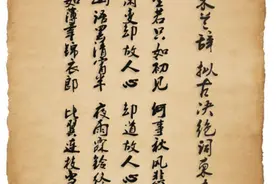 木兰辞 拟古决绝词柬
生若只如初见 何事秋风悲
闲变却故人心 却道故人心
山语罢清宵半 夜雨霖铃终
如薄幸锦衣郎 比翼连枝当